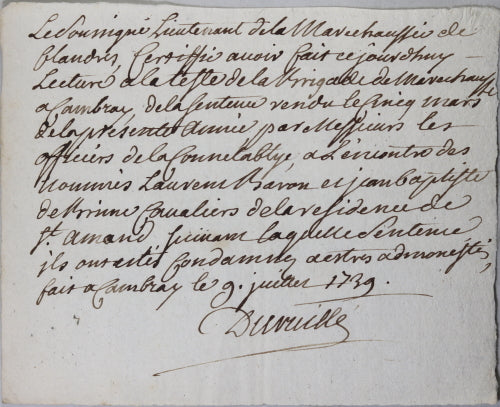 Le Soussigné Lieutenant de la Marechaussée de
flandres, Certiffie avoir fait ce jourdhuy
Lecture a la teste de la Brigade de Marechaussée
a Cambray de la Sentence rendu le Cinq mars
de la presente année par Messieurs les
officiers de la Connetablye, a L'encontre des
nommés Laurent Baron et jean Baptiste
de Brinne Cavaliers de la residence de
St. amand, suivant laquelle Sentence
ils ont estés Condamnez a estres admonestés,
fait a Cambray le 9. juillet 1739.